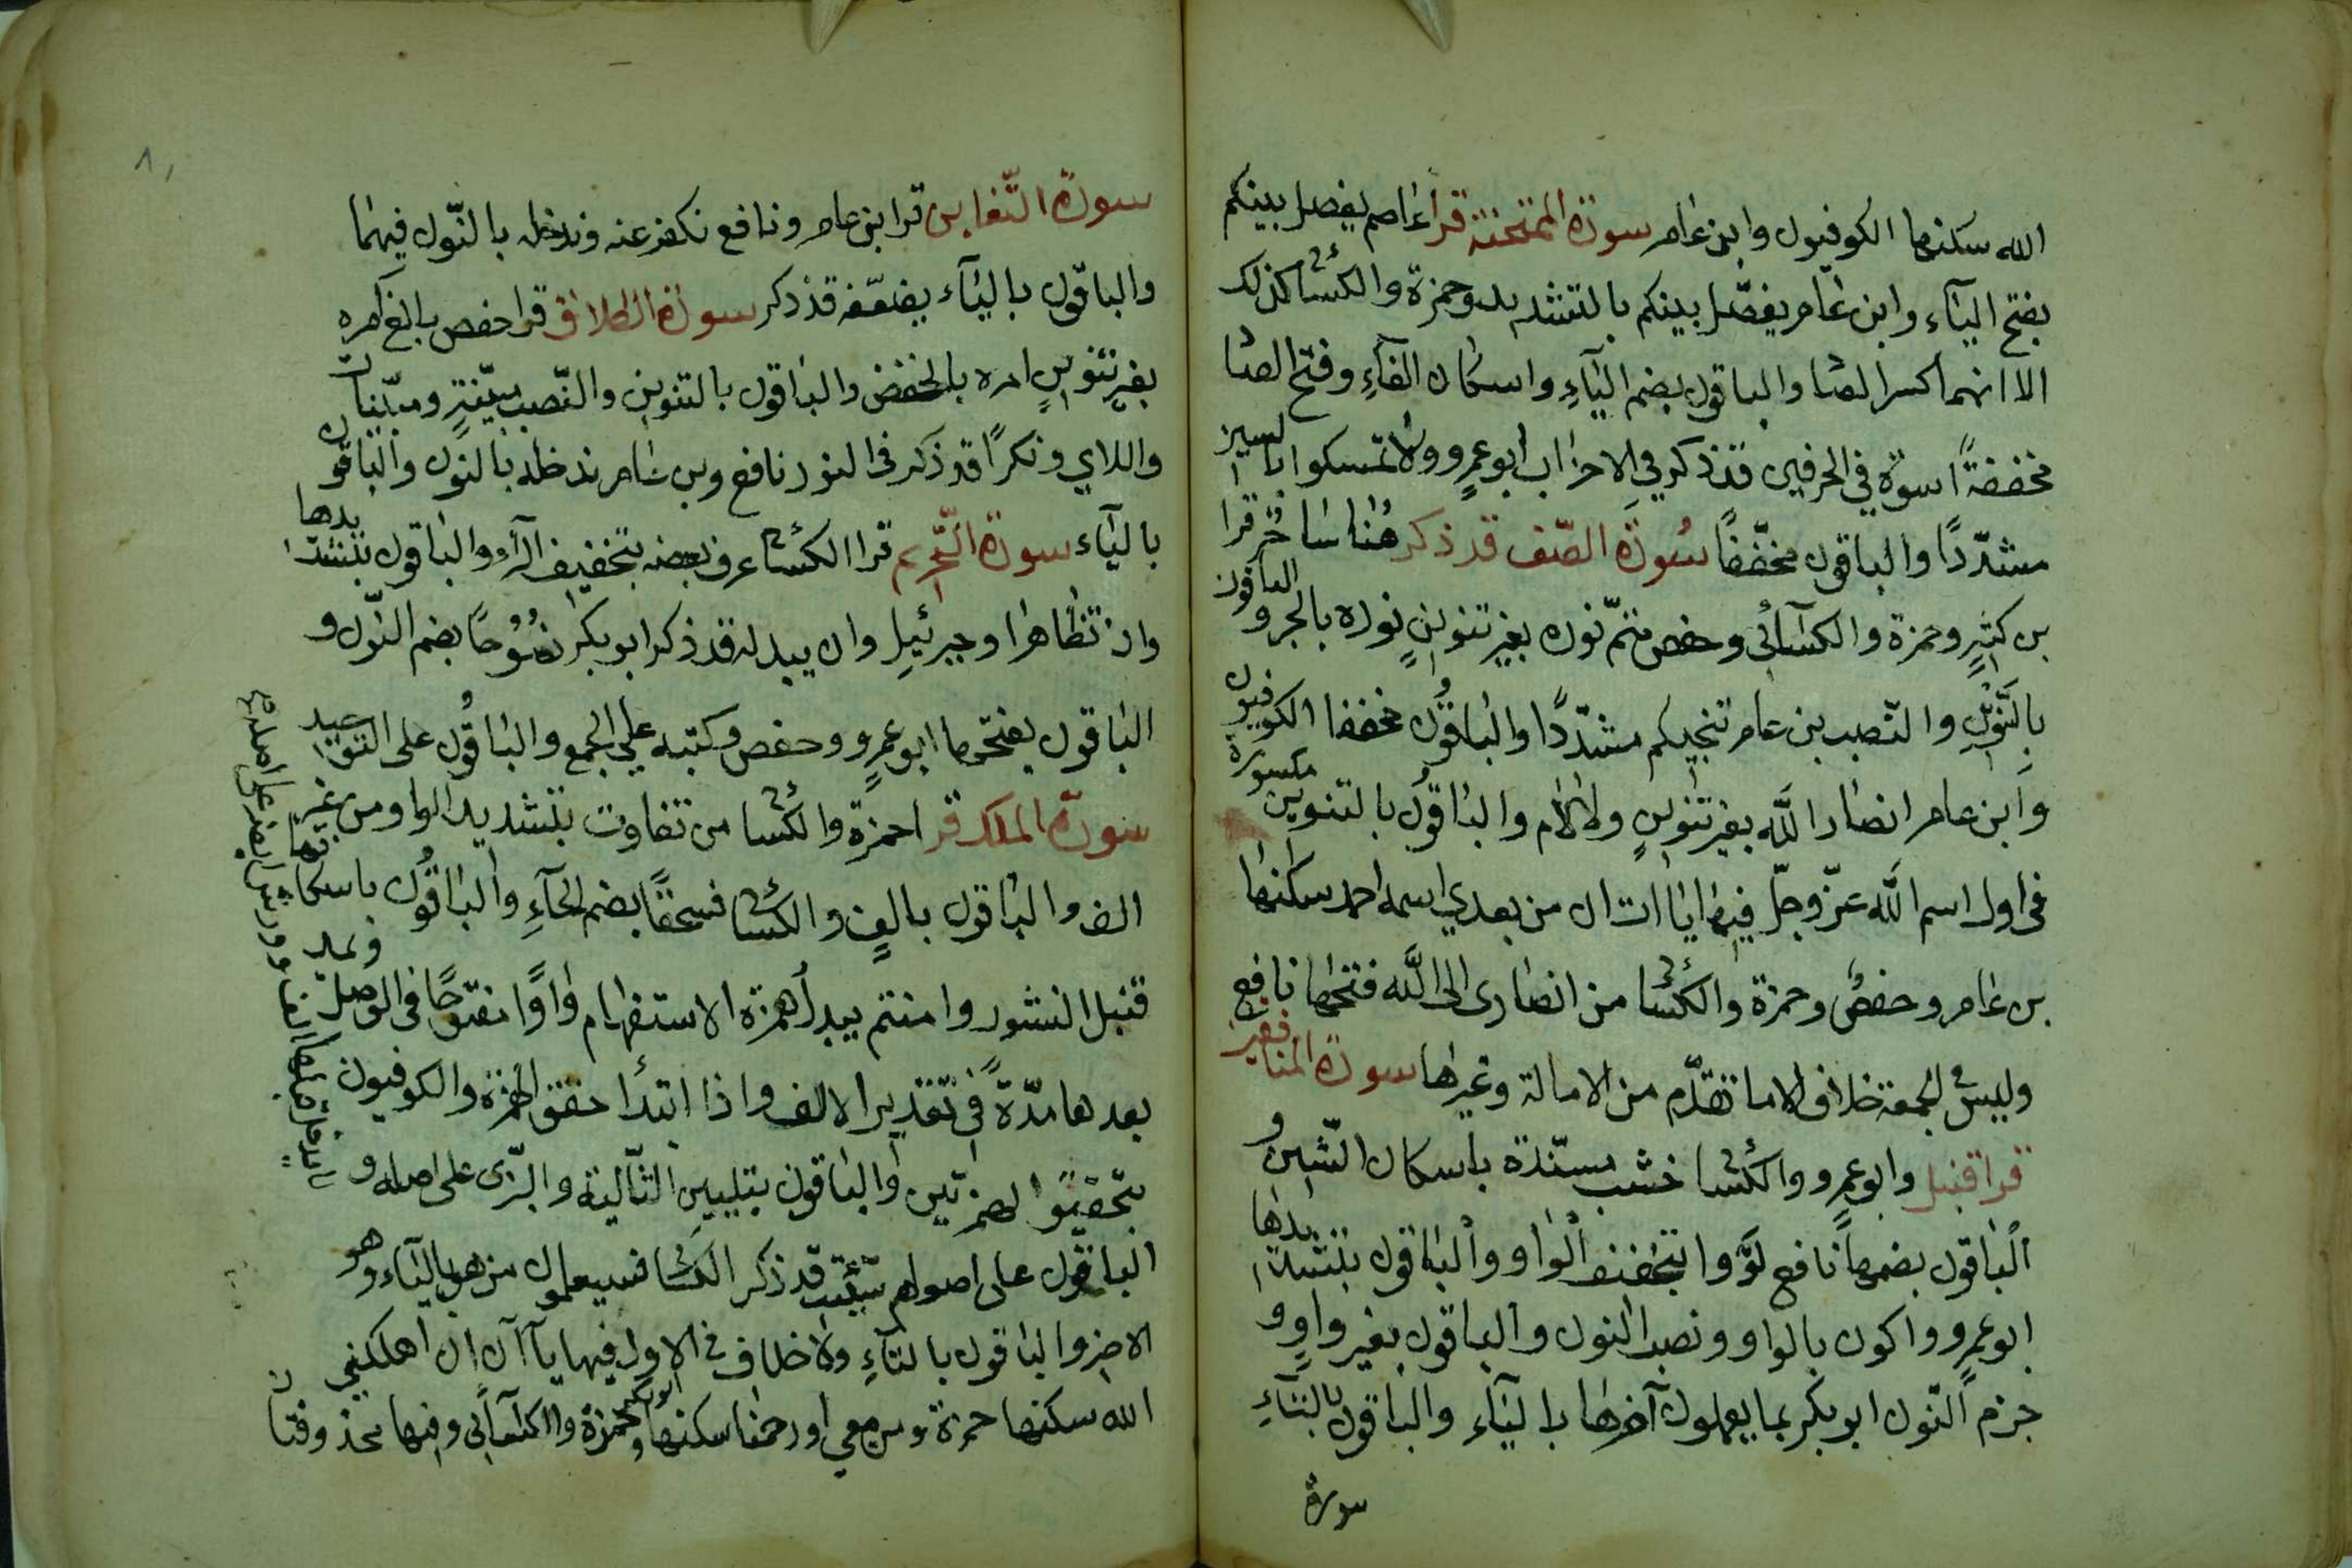 الله سكنها الكوفيون وابن عامر سورة الممتحنة قرا عاصم يفصل بينكم
بفتح الياء وابن عامر يفصّل بينكم بالتشديد وحمزة والكسائ كذلك
الا انهما كسرا الصا والباقون بضم الياء واسكان الفاء وفتح الصا
مخففةً اسوة في الحرفين قد ذكر في الاحزاب ابو عمرو ولا تمسكوا بالسين
مشدّدًا والباقون مخفّفًا سورة الصّف قد ذكر هنا ساحر قرا
بن كثير وحمزة والكسائى وحفص متمّ نوره بغير تنوين نوره بالجر والباقون
بالتنوين والنّصب بن عامر تنجيكم مشدّدًا والباقون مخففا الكوفيون
وابن عامر انصار الله بغير تنوين ولا لام والباقون بالتنوين مكسورة
فى اول اسم الله عزّ وجلّ فيها ياات ان من بعدي اسمه احمد سكنها
بن عامر وحفص وحمزة والكسائ من انصارى الى الله فتحها نافع
وليس في الجمعة خلاف الا ما تقدّم من الامالة وغيرها سورة المنافقين
قرا قنبل وابو عمرو والكسائ خشب مسنّدة باسكان الشين و
الباقون بضمها نافع لوّوا بتخفيف الواو والباقون بتشديدها
ابو عمرو واكون بالواو ونصب النون والباقون بغير واو و
جزم النّون ابو بكر بما يعملون آخرها بالياء والباقون بالتاء
سورة
سورة التّغابن قرا بن عامر ونافع نكفر عنه وندخله بالنّون فيهما
والباقون بالياء يضعّفه قد ذكر سورة الطلاق قرا حفص بالغ امره
بغير تنوين امره بالخفض والباقون بالتنوين والنّصب مبيّنة ومبيّنات
واللاي ونكرًا قد ذكر فى النور نافع وبن عامر ندخله بالنون والباقون
بالياء سورة التّحريم قرا الكسائ عرف بعضه بتخفيف الراء والباقون بتشديدها
وان تظاهرا وجبرئيل وان يبدله قد ذكر ابو بكر نصوحًا بضم النّون و
الباقون بفتحها ابو عمرو وحفص وكتبه علي الجمع والباقون على التوحيد
سورة الملك قرا حمزة والكسائ من تفاوت بتشديد الواو من غير
الف والباقون بالف والكسائ فسحقًا بضم الحاء والباقون باسكانها
قنبل النشور وامنتم يبدل همزة الاستفهام واوًا مفتوحًا فى الوصل ويمد
بعدها مدّة في تقدير الالف واذا ابتدأ حقق الهمزة والكوفيون
بتحقيق الهمزتين والباقون بتليين الثّانية والبزّى على اصله و
الباقون على اصولهم سيئت قد ذكر الكسائ فسيعلمون من هو بالياء وهو
الاخير والباقون بالتاء ولا خلاف في الاول فيها ياآن ان اهلكني
الله سكنها حمزة ومن معي او رحمنا سكنها ابو بكر وحمزة والكسائى وفيها محذوفتان